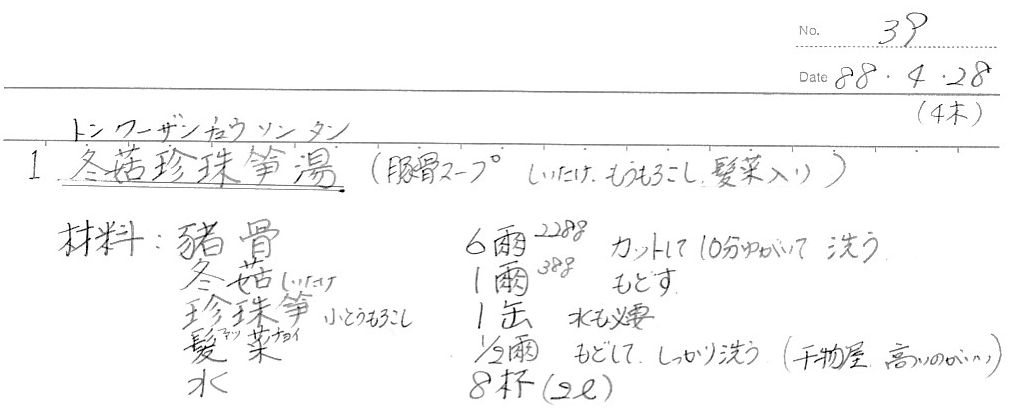 No. 39
Date 88・4・28
(4木)
トン クーザン チュウ ソン タン
1. 冬菇珍珠笋湯 (豚骨スープ しいたけ、もうもろこし、髮菜入り)
材料：豬骨 6両 228g カットして10分ゆがいて 洗う
冬菇 しいたけ 1両 38g もどす
珍珠笋 小とうもろこし 1缶 水も必要
髮菜 ファッ チョイ 1/2両 もどして、しっかり洗う (干物屋、高いのがいい)
水 8杯(2ℓ)